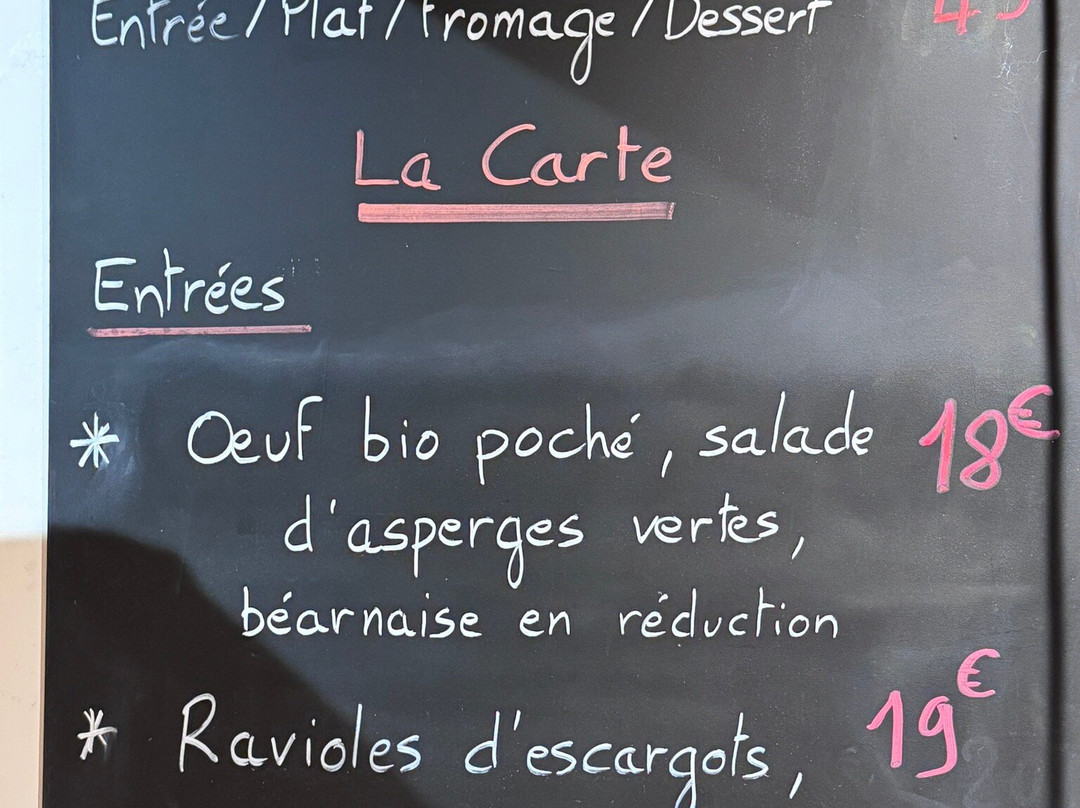 Entrée / Plat / Fromage / Dessert
La Carte
Entrées
* Œuf bio poché, salade 18€
d'asperges vertes,
béarnaise en réduction
* Ravioles d'escargots, 19€